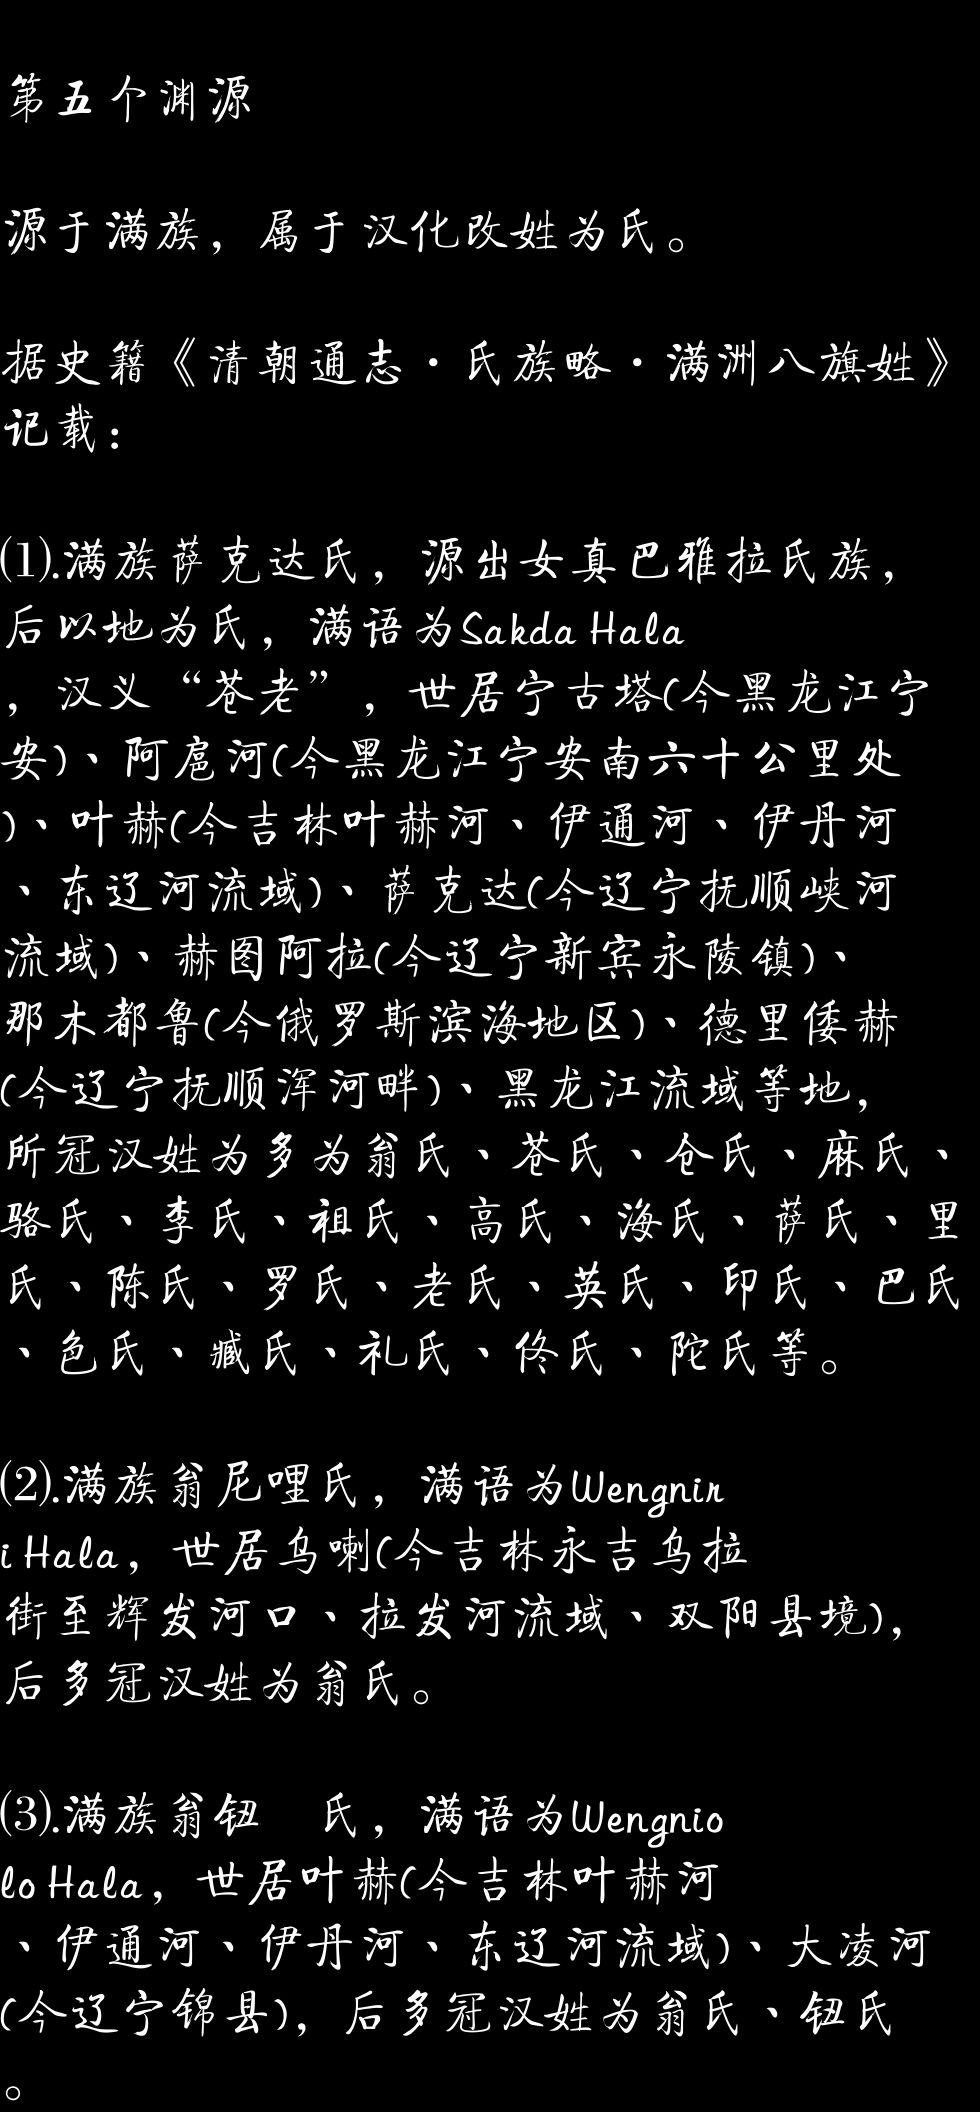 第五个渊源
源于满族，属于汉化改姓为氏。
据史籍《清朝通志·氏族略·满洲八旗姓》
记载：
⑴.满族萨克达氏，源出女真巴雅拉氏族，
后以地为氏，满语为Sakda Hala
，汉义“苍老”，世居宁古塔(今黑龙江宁
安)、阿扈河(今黑龙江宁安南六十公里处
)、叶赫(今吉林叶赫河、伊通河、伊丹河
、东辽河流域)、萨克达(今辽宁抚顺峡河
流域)、赫图阿拉(今辽宁新宾永陵镇)、
那木都鲁(今俄罗斯滨海地区)、德里倭赫
(今辽宁抚顺浑河畔)、黑龙江流域等地，
所冠汉姓为多为翁氏、苍氏、仓氏、麻氏、
骆氏、李氏、祖氏、高氏、海氏、萨氏、里
氏、陈氏、罗氏、老氏、英氏、印氏、巴氏
、色氏、臧氏、礼氏、佟氏、陀氏等。
⑵.满族翁尼哩氏，满语为Wengnir
i Hala，世居乌喇(今吉林永吉乌拉
街至辉发河口、拉发河流域、双阳县境)，
后多冠汉姓为翁氏。
⑶.满族翁钮　氏，满语为Wengnio
lo Hala，世居叶赫(今吉林叶赫河
、伊通河、伊丹河、东辽河流域)、大凌河
(今辽宁锦县)，后多冠汉姓为翁氏、钮氏
。